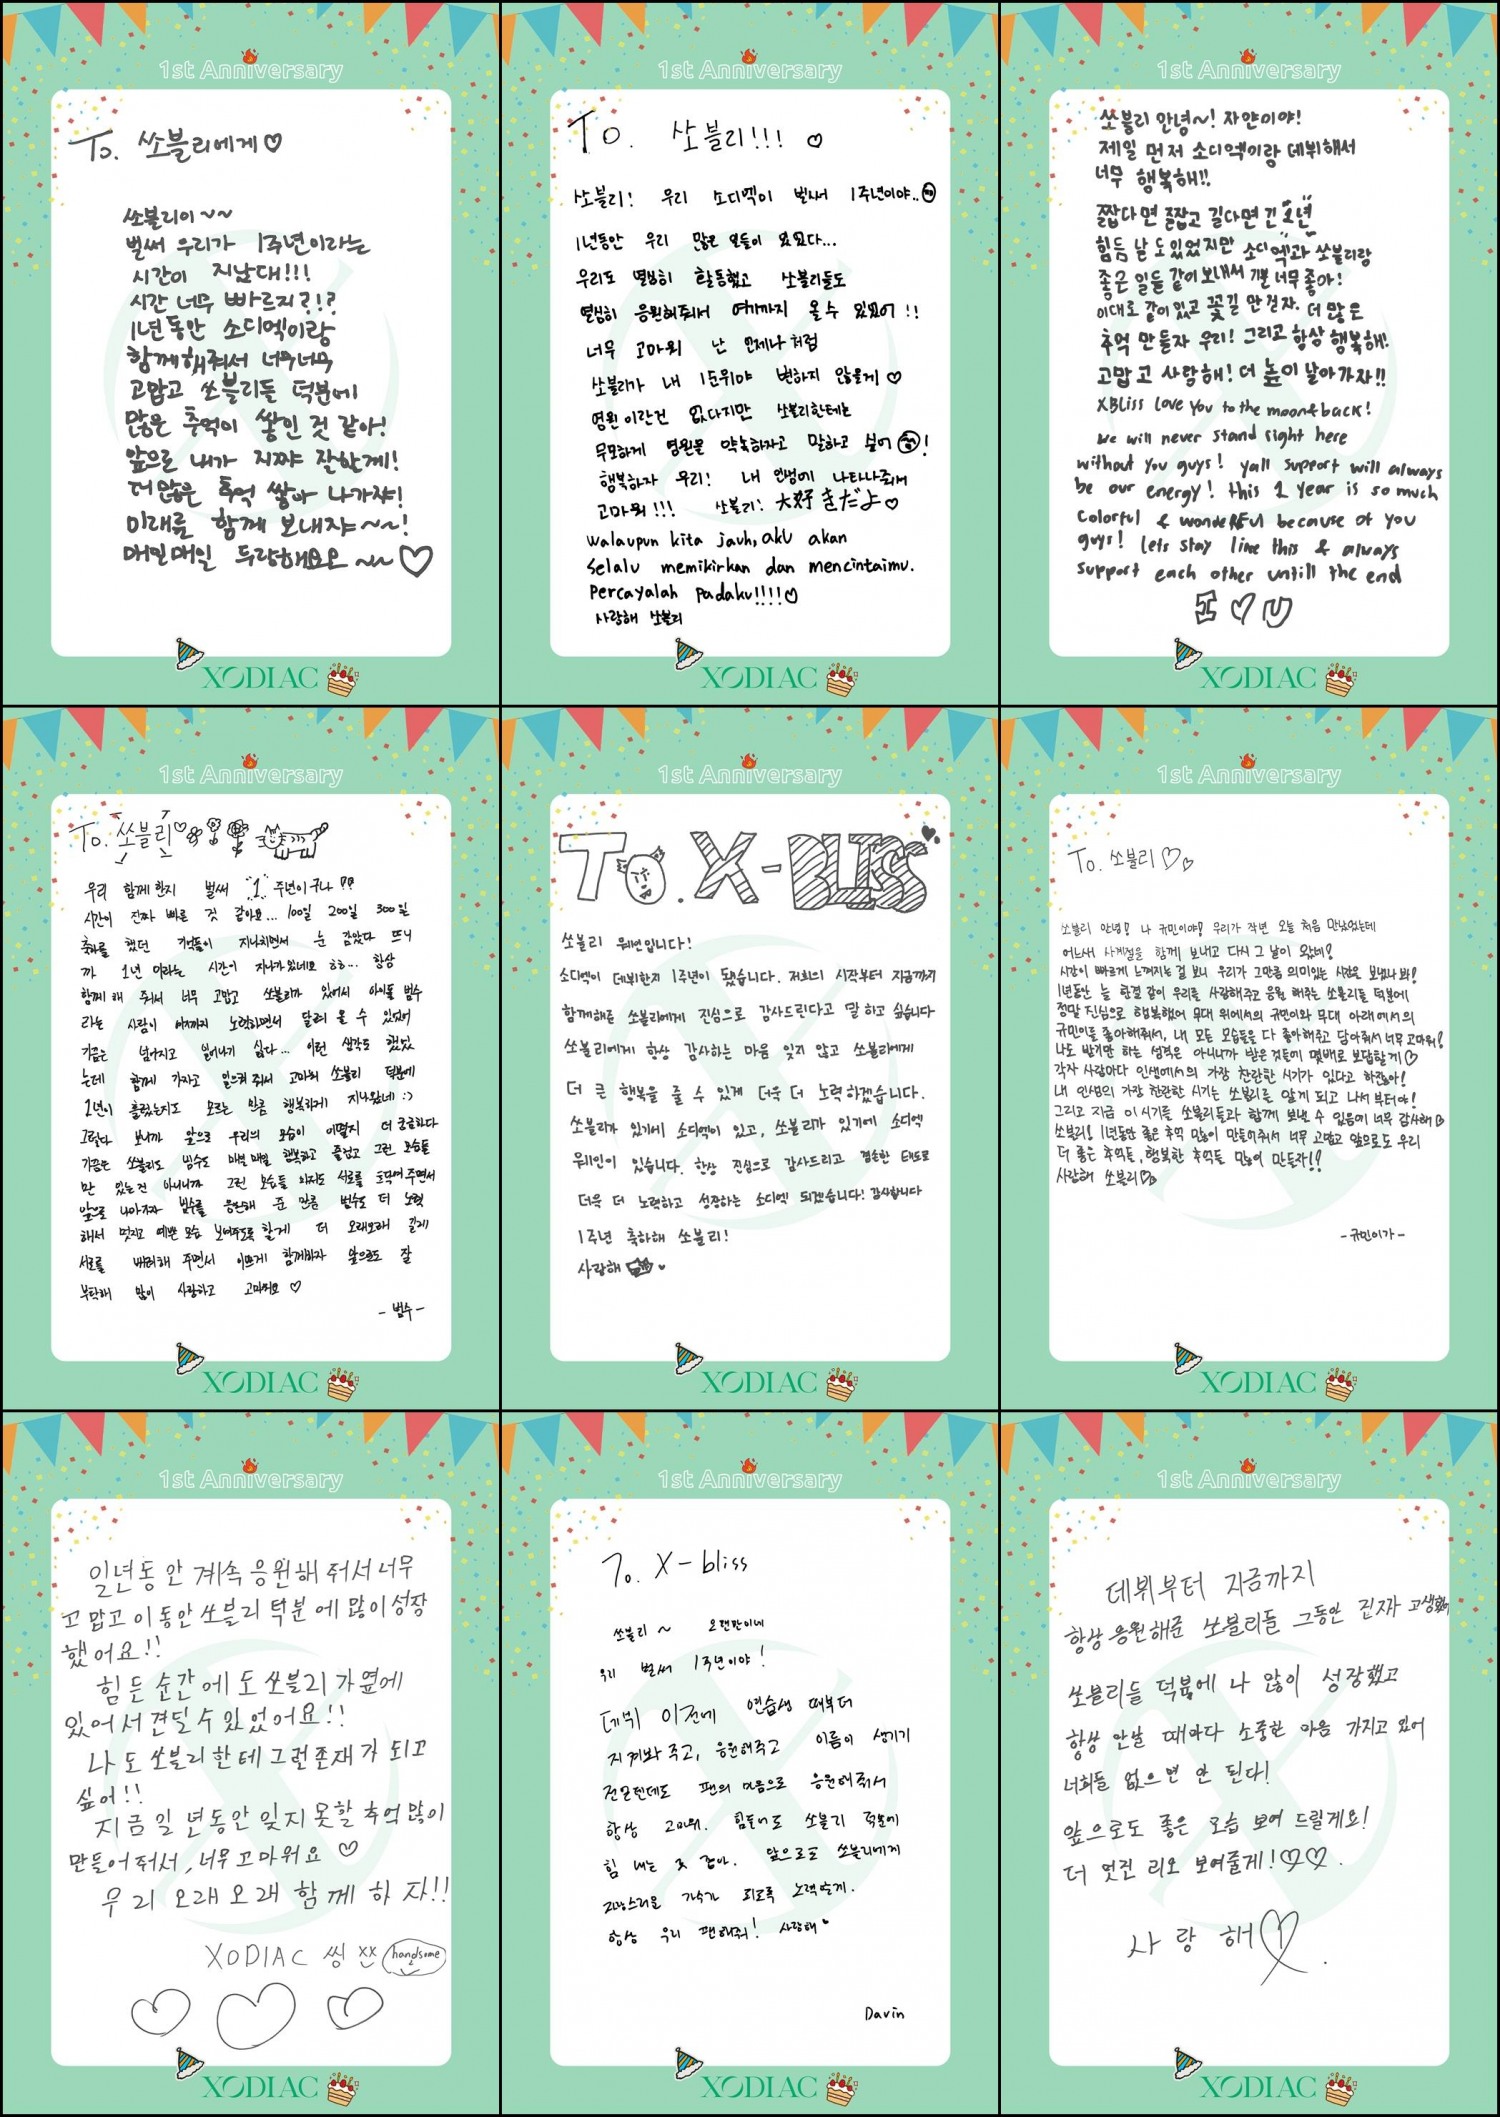 1st Anniversary
To. 쏘블리에게♡
쏘블리이~~
벌써 우리가 1주년이라는
시간이 지났대!!!
시간 너무 빠르지?!?
1년동안 소디엑이랑
함께해줘서 너무너무
고맙고 쏘블리들 덕분에
많은 추억이 쌓인 것 같아!
앞으로 내가 지짜 잘할게!
더 많은 추억 쌓아 나가쟈!
미래를 함께 보내쟈~~!
매일매일 두랑해요오~~♡
XODIAC
1st Anniversary
TO. 쏘블리!!! ♡
쏘블리! 우리 소디엑이 벌써 1주년이야..
1년동안 우리 많은 일들이 있었다...
우리도 열심히 활동했고 쏘블리들도
열심히 응원해줘서 여기까지 올 수 있었어!!
너무 고마워 난 언제나처럼
쏘블리가 내 1순위야 변하지 않을게♡
영원이란건 없다지만 쏘블리한테는
무모하게 영원을 약속하자고 말하고 싶어!
행복하자 우리! 내 인생에 나타나줘서
고마워!!! 쏘블리! 大好きだよ♡
walaupun kita jauh, aku akan
selalu memikirkan dan mencintaimu.
Percayalah padaku!!!!♡
사랑해 쏘블리
XODIAC
1st Anniversary
쏘블리 안녕~! 자얀이야!
제일 먼저 소디엑이랑 데뷔해서
너무 행복해!!
짧다면 짧고 길다면 긴 1년
힘든 날도 있었지만 소디엑과 쏘블리랑
좋은 일들 같이 보내서 너무 좋아!
이대로 같이 있고 꽃길만 걷자. 더 많은
추억 만들자 우리! 그리고 항상 행복해!
고맙고 사랑해! 더 높이 날아가자!!
XBliss love you to the moon & back!
We will never stand right here
without you guys! yall support will always
be our energy! this 1 year is so much
colorful & wondeRFul because of you
guys! lets stay like this & always
support each other untill the end
I ♡ U
XODIAC
1st Anniversary
To. 쏘블리♡
우리 함께한지 벌써 1주년이구나??
시간이 진짜 빠른 것 같아요... 100일 200일 300일
축하를 했던 기억들이 지나치면서 눈 감았다 뜨니
까 1년 이라는 시간이 지나가 있네요 ㅎㅎ... 항상
함께 해 줘서 너무 고맙고 쏘블리가 있어서 아이돌 범수
라는 사람이 여기까지 노력하면서 달려 올 수 있었어
가끔은 넘어지고 일어나기 싫다... 이런 생각도 했었
는데 함께 가자고 일으켜 줘서 고마워 쏘블리 덕분에
1년이 흘렀는지도 모르는 만큼 행복하게 지나왔네 :)
그렇다 보니까 앞으로 우리의 모습이 어떨지 더 궁금하다
가끔은 쏘블리도 범수도 매일 매일 행복하고 즐겁고 그런 모습들
만 있는건 아니니까 그런 모습들 마저도 서로를 도닥여 주면서
앞으로 나아가자 범수를 응원해 준 만큼 범수도 더 노력
해서 멋지고 예쁜 모습 보여주도록 할게 더 오래오래 길게
서로를 배려해 주면서 이쁘게 함께하자 앞으로도 잘
부탁해 많이 사랑하고 고마워요 ♡
- 범수 -
XODIAC
1st Anniversary
To. X-BLISS
쏘블리 웨인입니다!
소디엑이 데뷔한지 1주년이 됐습니다. 저희의 시작부터 지금까지
함께해준 쏘블리에게 진심으로 감사드린다고 말 하고 싶습니다
쏘블리에게 항상 감사하는 마음 잊지 않고 쏘블리에게
더 큰 행복을 줄 수 있게 더욱 더 노력하겠습니다.
쏘블리가 있기에 소디엑이 있고, 쏘블리가 있기에 소디엑
웨인이 있습니다. 항상 진심으로 감사드리고 겸손한 태도로
더욱 더 노력하고 성장하는 소디엑 되겠습니다! 감사합니다
1주년 축하해 쏘블리!
사랑해
XODIAC
1st Anniversary
To. 쏘블리♡♡
쏘블리 안녕! 나 규민이야! 우리가 작년 오늘 처음 만났었는데
어느새 사계절을 함께 보내고 다시 그 날이 왔네!
시간이 빠르게 느껴지는 걸 보니 우리가 그만큼 의미있는 시간을 보냈나봐!
1년동안 늘 한결 같이 우리를 사랑해주고 응원 해주는 쏘블리들 덕분에
정말 진심으로 행복했어 무대 위에서의 규민이와 무대 아래에서의
규민이를 좋아해줘서, 내 모든 모습들을 다 좋아해주고 담아줘서 너무 고마워!
나도 받기만 하는 성격은 아니니까 받은 것들에 몇배로 보답할게♡
각자 사람마다 인생에서의 가장 찬란한 시기가 있다고 하잖아!
내 인생의 가장 찬란한 시기는 쏘블리를 알게 되고 나서 부터야!
그리고 지금 이 시기를 쏘블리들과 함께 보낼 수 있음에 너무 감사해♡
쏘블리! 1년동안 좋은 추억 많이 만들어줘서 너무 고맙고 앞으로도 우리
더 좋은 추억들, 행복한 추억들 많이 만들자!!
사랑해 쏘블리♡
- 규민이가 -
XODIAC
1st Anniversary
일년동안 계속 응원해 줘서 너무
고맙고 이 동안 쏘블리 덕분에 많이 성장
했어요!!
힘든 순간에도 쏘블리가 옆에
있어서 견딜 수 있었어요!!
나도 쏘블리한테 그런 존재가 되고
싶어!!
지금 일 년동안 잊지 못할 추억 많이
만들어 줘서, 너무 고마워요 ♡
우리 오래오래 함께 하자!!
XODIAC 씽 ㅉㅉ handsome
XODIAC
1st Anniversary
To. X-bliss
쏘블리~ 오랜만이네
우리 벌써 1주년이야!
데뷔 이전에 연습생 때부터
지켜봐 주고, 응원해주고 이름이 생기기
전인데도 팬의 마음으로 응원해줘서
항상 고마워. 힘들어도 쏘블리 덕분에
힘 내는 것 같아. 앞으로도 쏘블리에게
자랑스러운 가수가 되도록 노력할게.
항상 우리 팬해줘! 사랑해
Davin
XODIAC
1st Anniversary
데뷔부터 지금까지
항상 응원해준 쏘블리들 그동안 진짜 고생했어
쏘블리들 덕분에 나 많이 성장했고
항상 만날 때마다 소중한 마음 가지고 있어
너희들 없으면 안 된다!
앞으로도 좋은 모습 보여 드릴게요!
더 멋진 리오 보여줄게!♡♡.
사랑해♡.
XODIAC